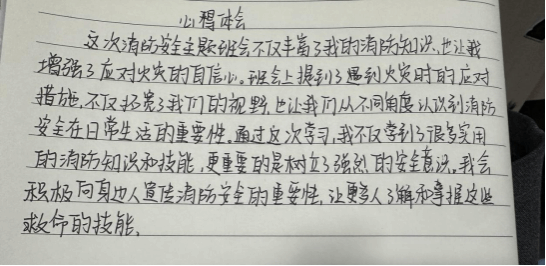 心得体会
这次消防安全主题班会不仅丰富了我的消防知识,也让我
增强了应对火灾的自信心。班会上提到了遇到火灾时的应对
措施,不仅拓宽了我们的视野,也让我们从不同角度认识到消防
安全在日常生活的重要性。通过这次学习,我不仅学到了很多实用
的消防知识和技能,更重要的是树立了强烈的安全意识。我会
积极向身边人宣传消防安全的重要性,让更多人了解和掌握这些
救命的技能。